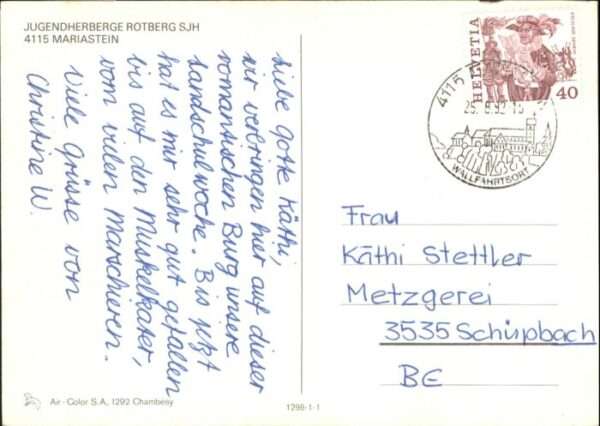 JUGENDHERBERGE ROTBERG SJH
4115 MARIASTEIN
Liebe Gotte Käthi,
wir verbringen hier auf dieser
romantischen Burg unsere
Landschulwoche. Bis jetzt
hat es mir sehr gut gefallen
bis auf den Muskelkater,
vom vielen Marschieren.
Viele Grüsse von
Christine W.
HELVETIA
40
4115
WALLFAHRTSORT
Frau
Käthi Stettler
Metzgerei
3535 Schüpbach
BE
Air - Color S.A., 1292 Chambésy
1296-1-1